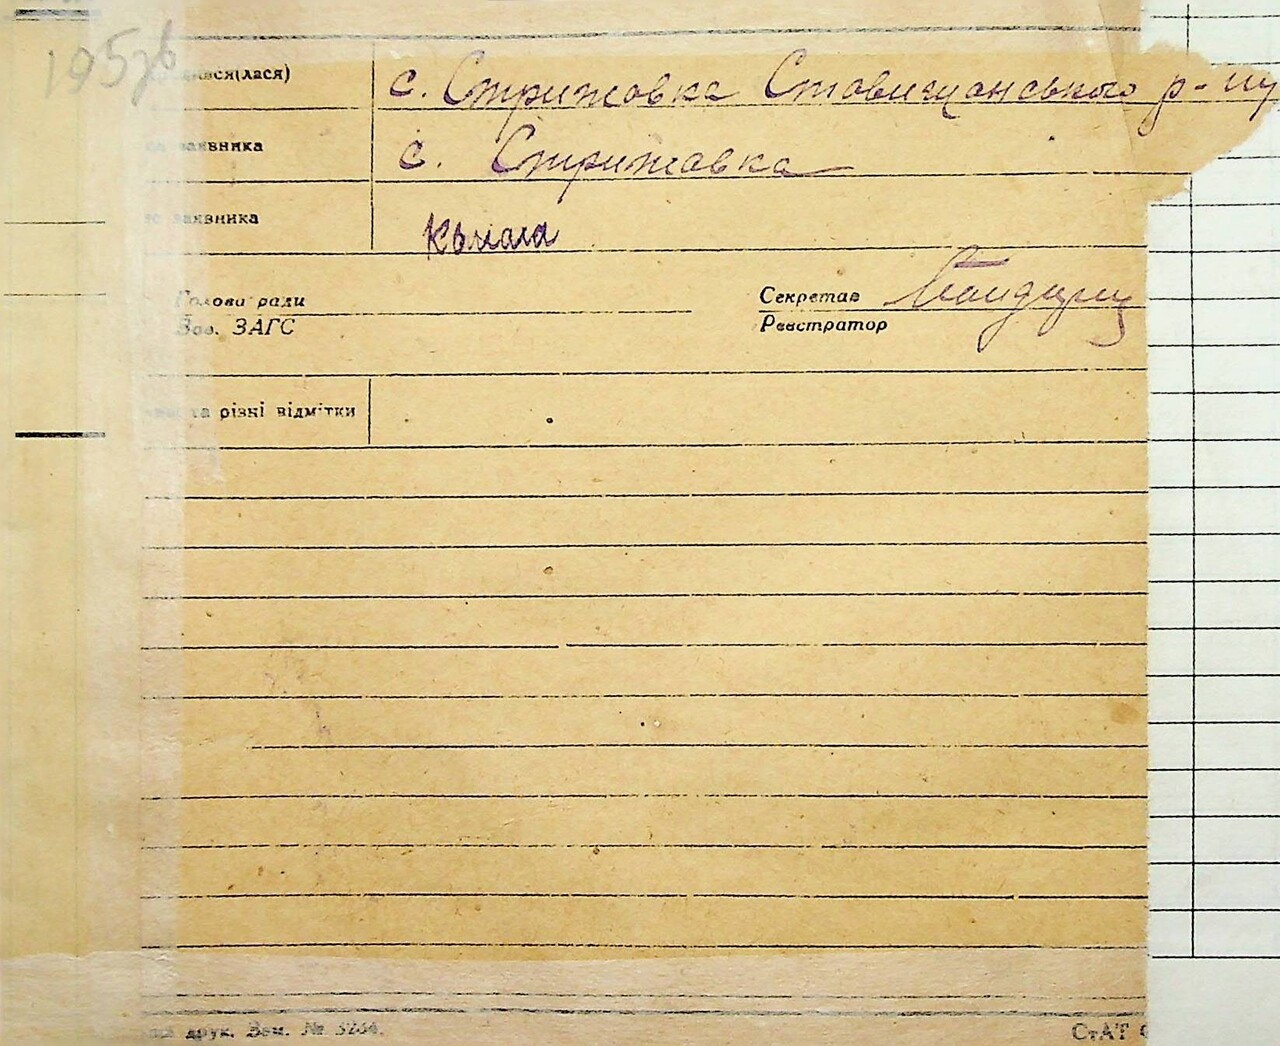 195зв
вся(лася) с. Стрижовка Ставищанського р-ну
заявника с. Стрижовка
заявника
Голова ради Секретар
Зав. ЗАГС Реєстратор
та різні відмітки
друк. Зам. № 3264. СтАТ